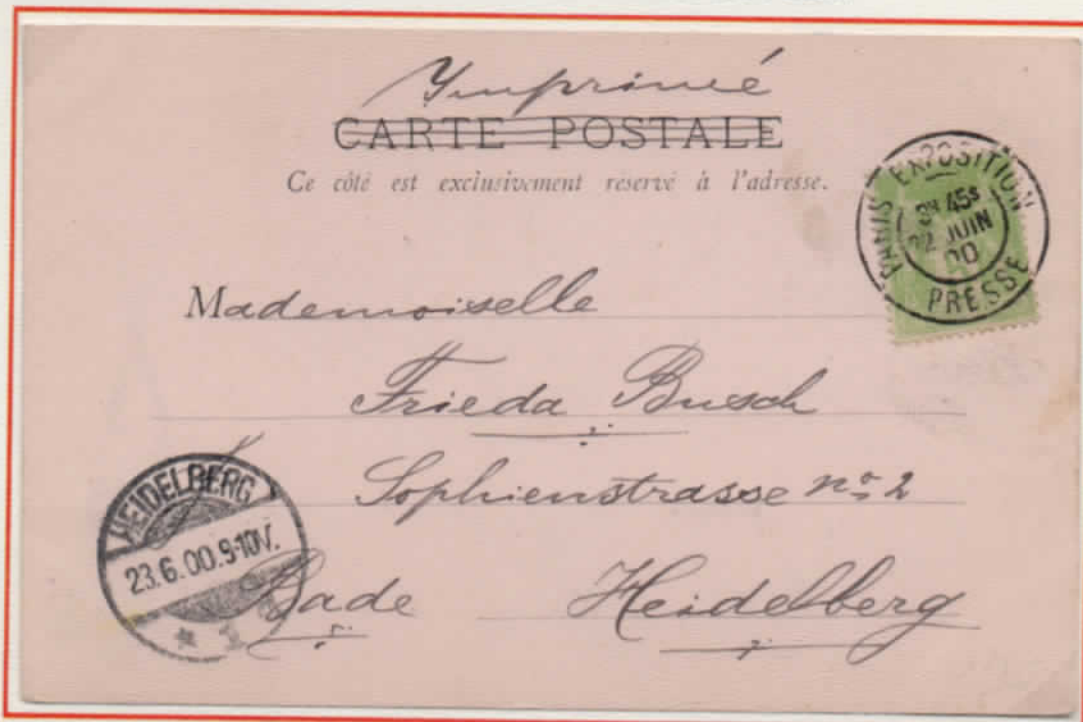 Imprimé
CARTE POSTALE
Ce côté est exclusivement reservé à l'adresse.
PARIS EXPOSITION
3E 45S
22 JUIN
00
PRESSE
Mademoiselle
Frieda Busch
Sophienstrasse no 2
Bade Heidelberg
HEIDELBERG
23.6.00.9-10V.
* 1.